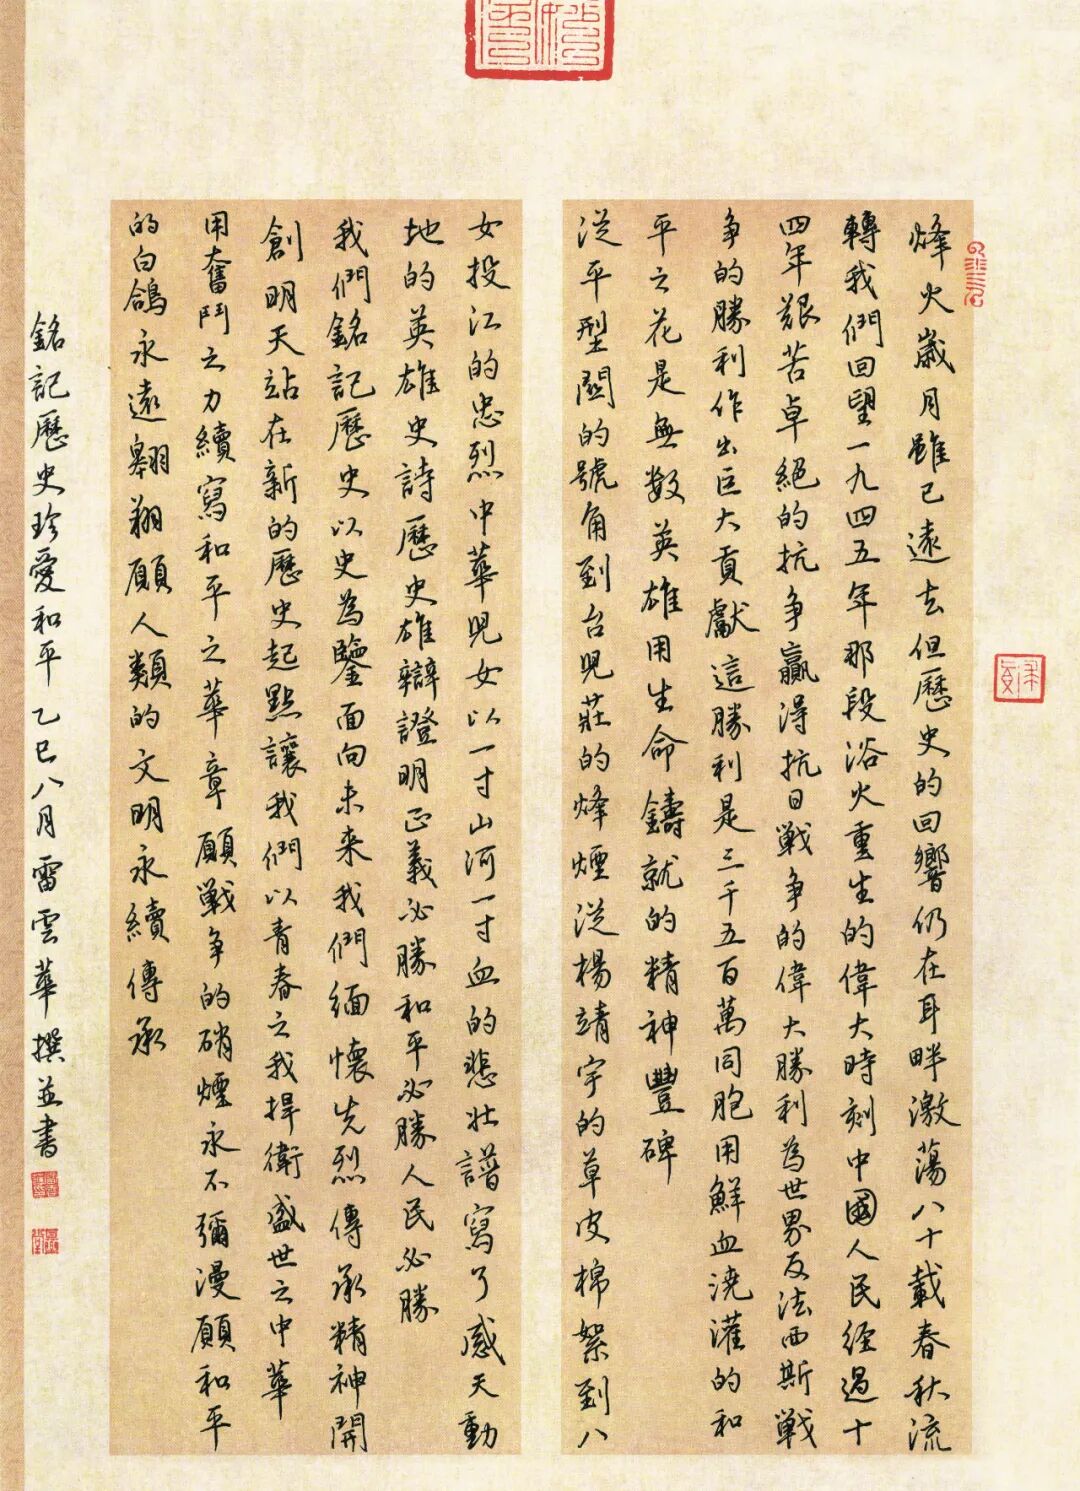 烽火歲月雖已遠去但歷史的回響仍在耳畔激蕩八十載春秋流
轉我們回望一九四五年那段浴火重生的偉大時刻中國人民經過十
四年艱苦卓絕的抗争贏得抗日戰争的偉大勝利為世界反法西斯戰
争的勝利作出巨大貢獻這勝利是三千五百萬同胞用鮮血澆灌的和
平之花是無數英雄用生命鑄就的精神豐碑
從平型關的號角到台兒莊的烽煙從楊靖宇的草皮棉絮到八
女投江的忠烈中華兒女以一寸山河一寸血的悲壯譜寫了感天動
地的英雄史詩歷史雄辯證明正義必勝和平必勝人民必勝
我們銘記歷史以史為鑒面向未來我們緬懷先烈傳承精神開
創明天站在新的歷史起點讓我們以青春之我捍衛盛世之中華
用奮鬥之力續寫和平之華章願戰争的硝煙永不彌漫願和平
的白鴿永遠翱翔願人類的文明永續傳承
銘記歷史珍愛和平 乙巳八月雷雲華撰並書